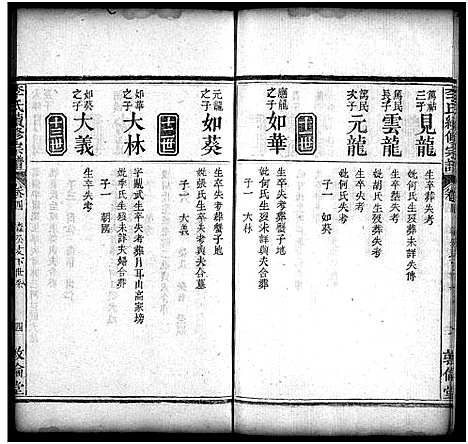 李氏續修宗譜
篤祜三子
見龍
生卒葬失考
妣何氏生歿葬未詳失傳
篤民長子
雲龍
生卒葬失考
妣胡氏生歿葬失考
篤民次子
元龍
生卒葬失考
妣何氏生歿未詳合葬
子一 如葵
十一世
應龍之子
如華
生卒失考
妣何氏生歿葬失考
子一 大林
元龍之子
如葵
生卒失考葬蟹子地
妣張氏生卒失考與夫合墓
子一 大義
十二世
如華之子
大林
字胤武生卒失考葬月耳山高家塝
妣季氏生歿未詳夫婦合葬
子一 朝國
十二世
如葵之子
大義
生卒失考
李氏續修宗譜
卷四
四
敦倫堂